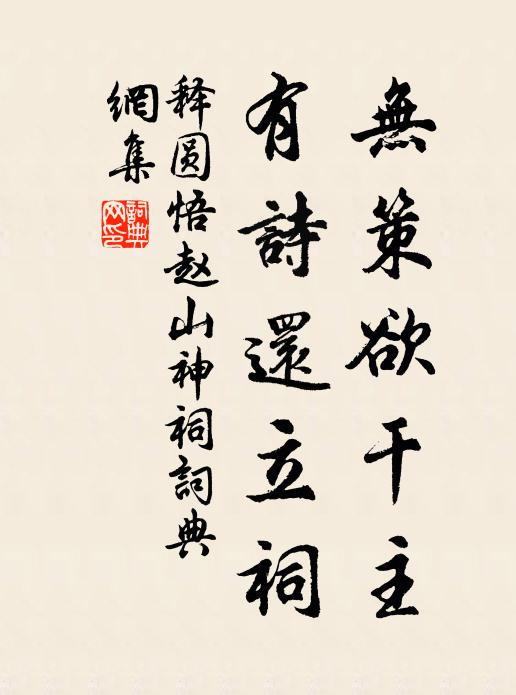 無策欲干主
有詩還立祠
释圆悟赵山神祠詞典
網集
詞典網印